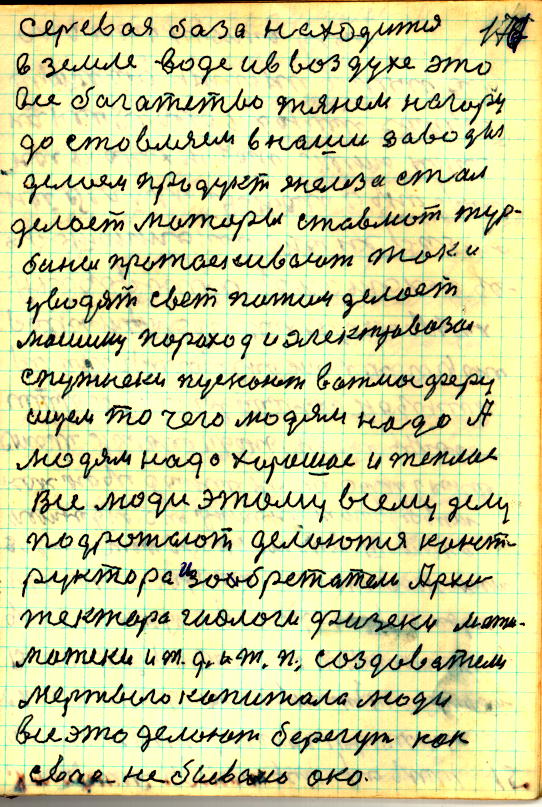 серевая база находится 176
в земле воде и в воздухе это
все багатство тянем нагору
до стовляем в наши заводы
делоем продукт железа стал
делоет моторы ставлют тур-
бины протоскивают ток и
уводят свет потом делоет
машину пороход и электровозы
спутнеки пускоют ватмосферу
ищем то чего людям надо А
людям надо хорошае и теплае
Все люди этому всему делу
подрожоют делоются конст-
руктора изообретатели Архи-
тектора гиологи физеки мати-
матеки и т. д. и т. п., создоватили
мертвого капитала люди
все это делоют берегут как
своа не бывало око.